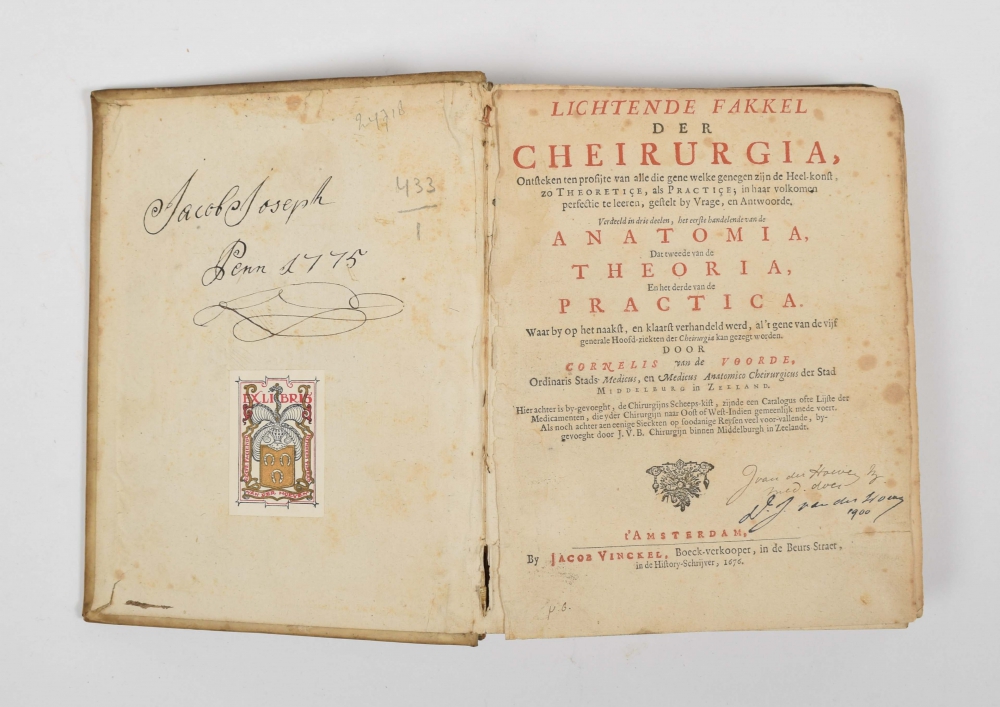 24718
433
1
Jacob Joseph
Penn 1775
EX LIBRIS
LICHTENDE FAKKEL
DER
CHEIRURGIA,
Ontsteken ten profijte van alle die gene welke genegen zijn de Heel-konst,
zo THEORETICE, als PRACTICE; in haar volkomen
perfectie te leeren, gestelt by Vrage, en Antwoorde.
Verdeeld in drie deelen, het eerste handelende van de
ANATOMIA,
Dat tweede van de
THEORIA,
En het derde van de
PRACTICA.
Waar by op het naakst, en klaarst verhandeld werd, al 't gene van de vijf
generale Hoofd-ziekten der Cheirurgia kan gezegt werden.
DOOR
CORNELIS van de VOORDE,
Ordinaris Stads-Medicus, en Medicus Anatomico Cheirurgicus der Stad
MIDDELBURG in ZEELAND.
Hier achter is by-gevoeght, de Chirurgijns Scheeps-kist, zijnde een Catalogus ofte Lijste der
Medicamenten, die yder Chirurgijn naar Oost of West-Indien gemeenlijk mede voert.
Als noch achter aen eenige Sieckten op soodanige Reysen veel voor-vallende, by-
gevoeght door J. V. B. Chirurgijn binnen Middelburgh in Zeelandt.
J van der Hoeven
med. doct
Dr. J. van der Hoeven
1900
t'AMSTERDAM,
By JACOB VINCKEL, Boeck-verkooper, in de Beurs Straet,
in de History-Schrijver, 1676.